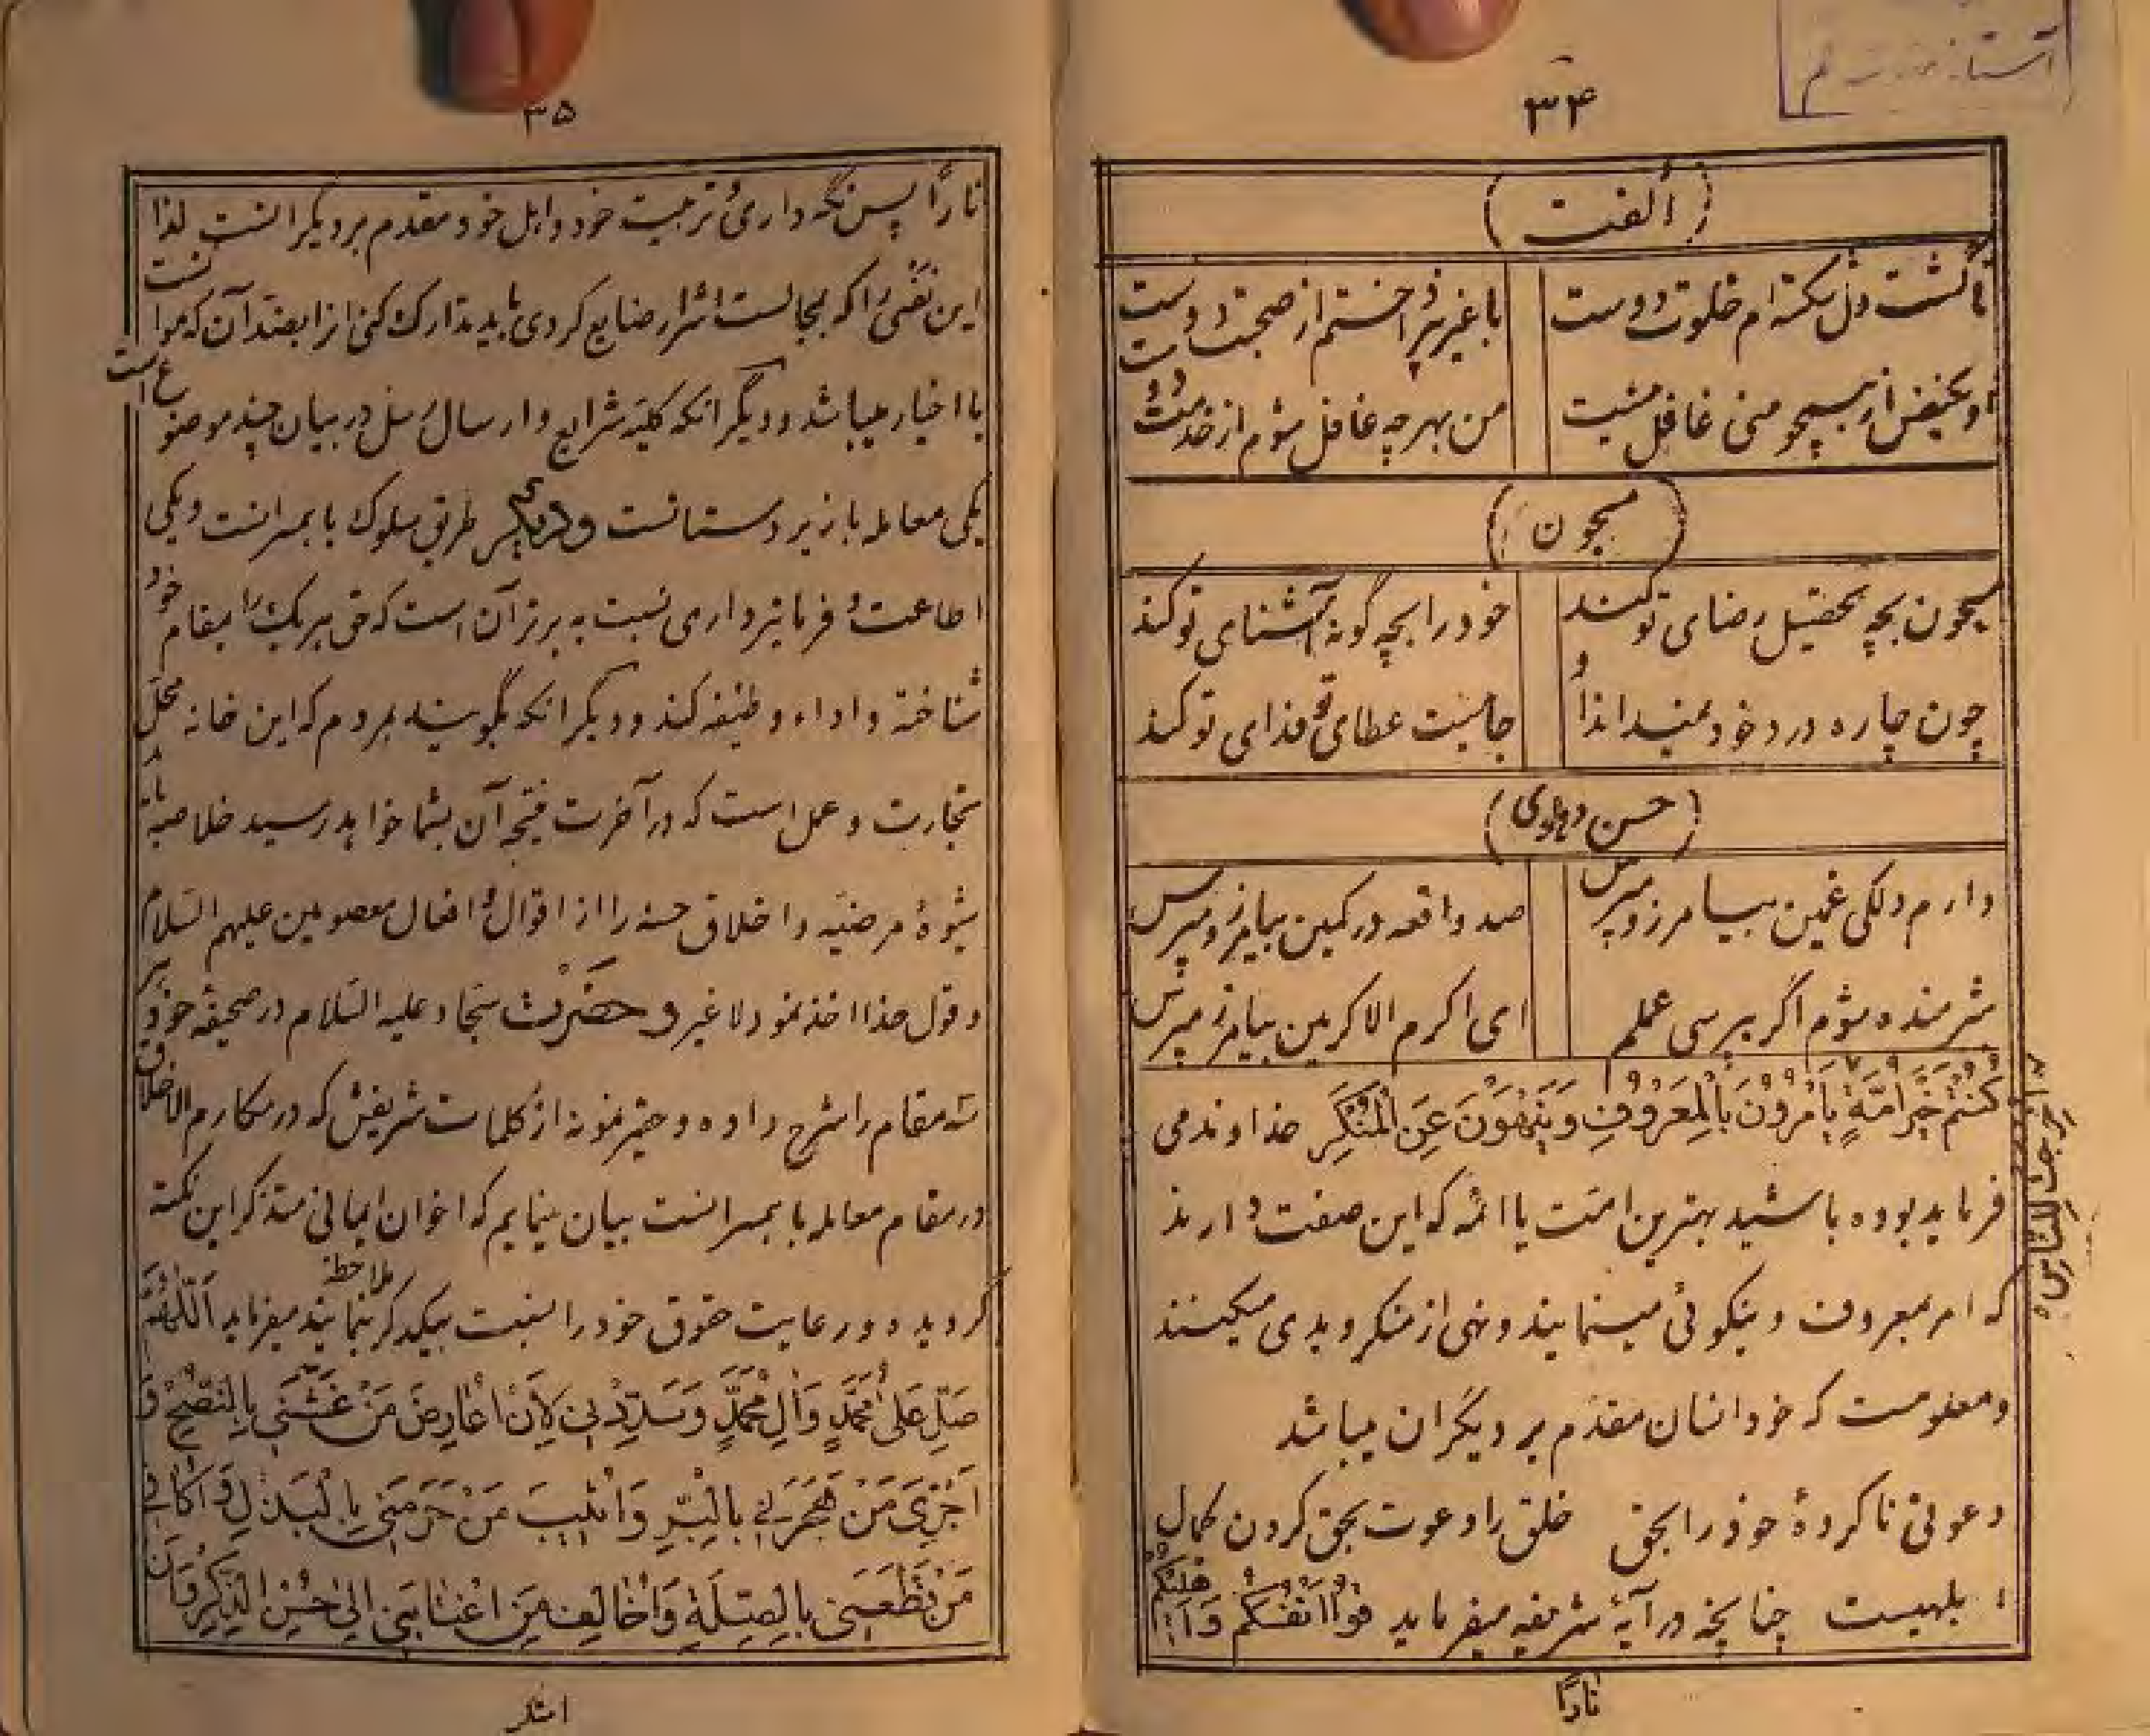 ۳۴
(الفت)
تا گشت دل شکسته ام خلوت دوست
با غیر نپرداختم از صحبت دوست
او یکنفس از همچو منی غافل نیست
من بهر چه غافل شوم از خدمت دوست
(مجنون)
مجنون بچه تحصیل رضای تو کند
خود را بچه گونه آشنای تو کند
چون چاره درد خود نمیداند او
جانیست عطای تو فدای تو کند
(حسن دهلوی)
دارم دلکی غمین بیامرز و مپرس
صد واقعه در کمین بیامرز و مپرس
شرمنده شوم اگر بپرسی عملم
ای اکرم الاکرمین بیامرز و مپرس
کُنْتُمْ خَیْرَ اُمَّةٍ تَأْمُرُونَ بِالْمَعْرُوفِ وَیَنْهَوْنَ عَنِ الْمُنْکَرِ خداوند می
اخرجت للناس
فرماید بوده باشید بهترین امت یا ائمه که این صفت دارند
که امر بمعروف و نیکوئی مینمایند و نهی از منکر و بدی میکنند
و معلومست که خود انسان مقدم بر دیگران میباشد
دعوتی ناکردهٔ خود را بحق خلق را دعوت بحق کردن کمال
بلهیست چنانچه در آیهٔ شریفه میفرماید قُوا اَنْفُسَکُمْ وَاَهْلیکُمْ
نارًا
۳۵
نارًا پس نگه داری و تربیت خود و اهل خود مقدم بر دیگرانست لذا
این نفسی را که بمجالست اشرار ضایع کردی باید تدارک کنی از ابعتد آن که موانست
با اخیار میباشد و دیگر آنکه کلیه شرایع و ارسال رسل در بیان چند موضوع است
یکی معامله با زیر دستانست و دیگر طریق سلوک با همسرانست و یکی
اطاعت و فرمانبرداری نسبت به برتر آن است که حق هر یک را بمقام خود
شناخته و اداء وظیفه کند و دیگر آنکه بگویند بمردم که این خانه محل
تجارت و عمل است که در آخرت نتیجه آن بشما خواهد رسید خلاصه باید
شیوهٔ مرضیه و اخلاق حسنه را از اقوال و افعال معصومین علیهم السلام
و قول خدا اخذ نمود لا غیر و حضرت سجاد علیه السلام در صحیفهٔ خود
سه مقام را شرح داده و حقیر نمونه از کلمات شریفش که در مکارم الاخلاق
در مقام معامله با همسرانست بیان مینمایم که اخوان ایمانی متذکر این نکته
گردیده و رعایت حقوق خود را نسبت بیکدیگر ملاحظه نمایند میفرماید اَللّٰهُمَّ
صَلِّ عَلیٰ مُحَمَّدٍ وَاٰلِ مُحَمَّدٍ وَسَدِّدْنی لِاَنْ اُعارِضَ مَنْ غَشَّنی بِالنُّصْحِ وَ
اَجْزِیَ مَنْ هَجَرَنی بِالْبِرِّ وَاُثیبَ مَنْ حَرَمَنی بِالْبَذْلِ وَاُکافِیَ
مَنْ قَطَعَنی بِالصِّلَةِ وَاُخالِفَ مَنِ اغْتابَنی اِلیٰ حُسْنِ الذِّکْرِ وَاَنْ
اشکر